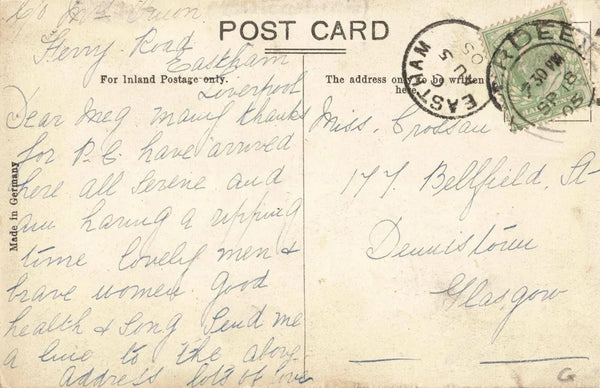 POST CARD
For Inland Postage only.
The address only to be written
here.
Made in Germany
EASTHAM
AU 5
05
ABERDEEN
7.30 PM
SP 18
05
Ferry Road
Eastham
Liverpool
Dear Meg, many thanks
for P.C. have arrived
here all serene and
am having a ripping
time lovely men &
brave women. Good
health & Song Send me
a line to the above
address lots of love
Miss. Crossan
177. Bellfield. St
Dennistoun
Glasgow
G